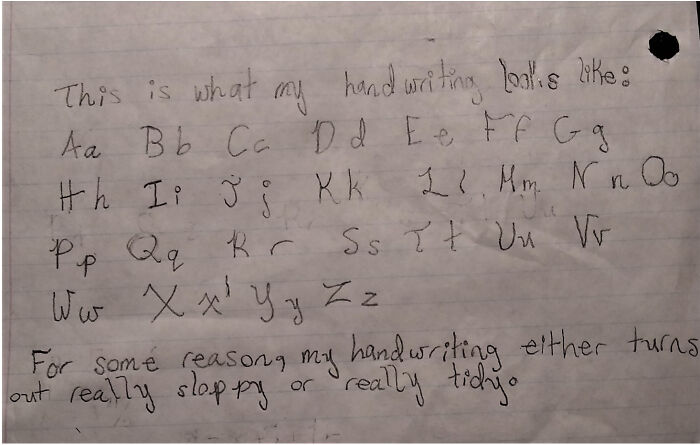 This is what my handwriting looks like:
Aa Bb Cc Dd Ee Ff Gg
Hh Ii Jj Kk Ll Mm Nn Oo
Pp Qq Rr Ss Tt Uu Vv
Ww Xx Yy Zz
For some reason, my handwriting either turns
out really sloppy or really tidy.